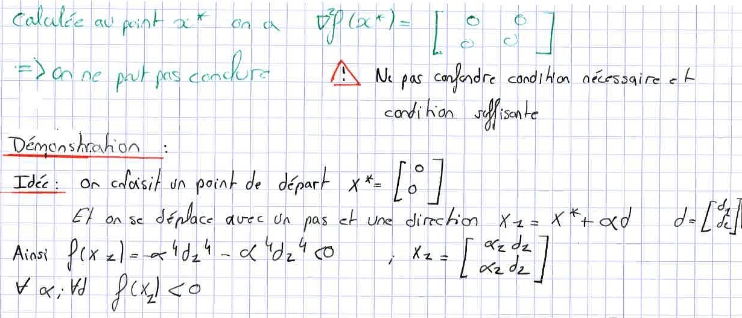 Calculée au point x* on a ∇²f(x*) = [ 0 0 ; 0 0 ]
=> on ne peut pas conclure ⚠ Ne pas confondre condition nécessaire et
condition suffisante
Démonstration :
Idée : on choisit un point de départ x* = [ 0 ; 0 ]
Et on se déplace avec un pas et une direction x1 = x* + αd d = [ d1 ; d2 ]
Ainsi f(x2) = -α⁴d2⁴ - α⁴d2⁴ < 0 ; x2 = [ α2 d2 ; α2 d2 ]
∀ α ; ∀d f(x2) < 0